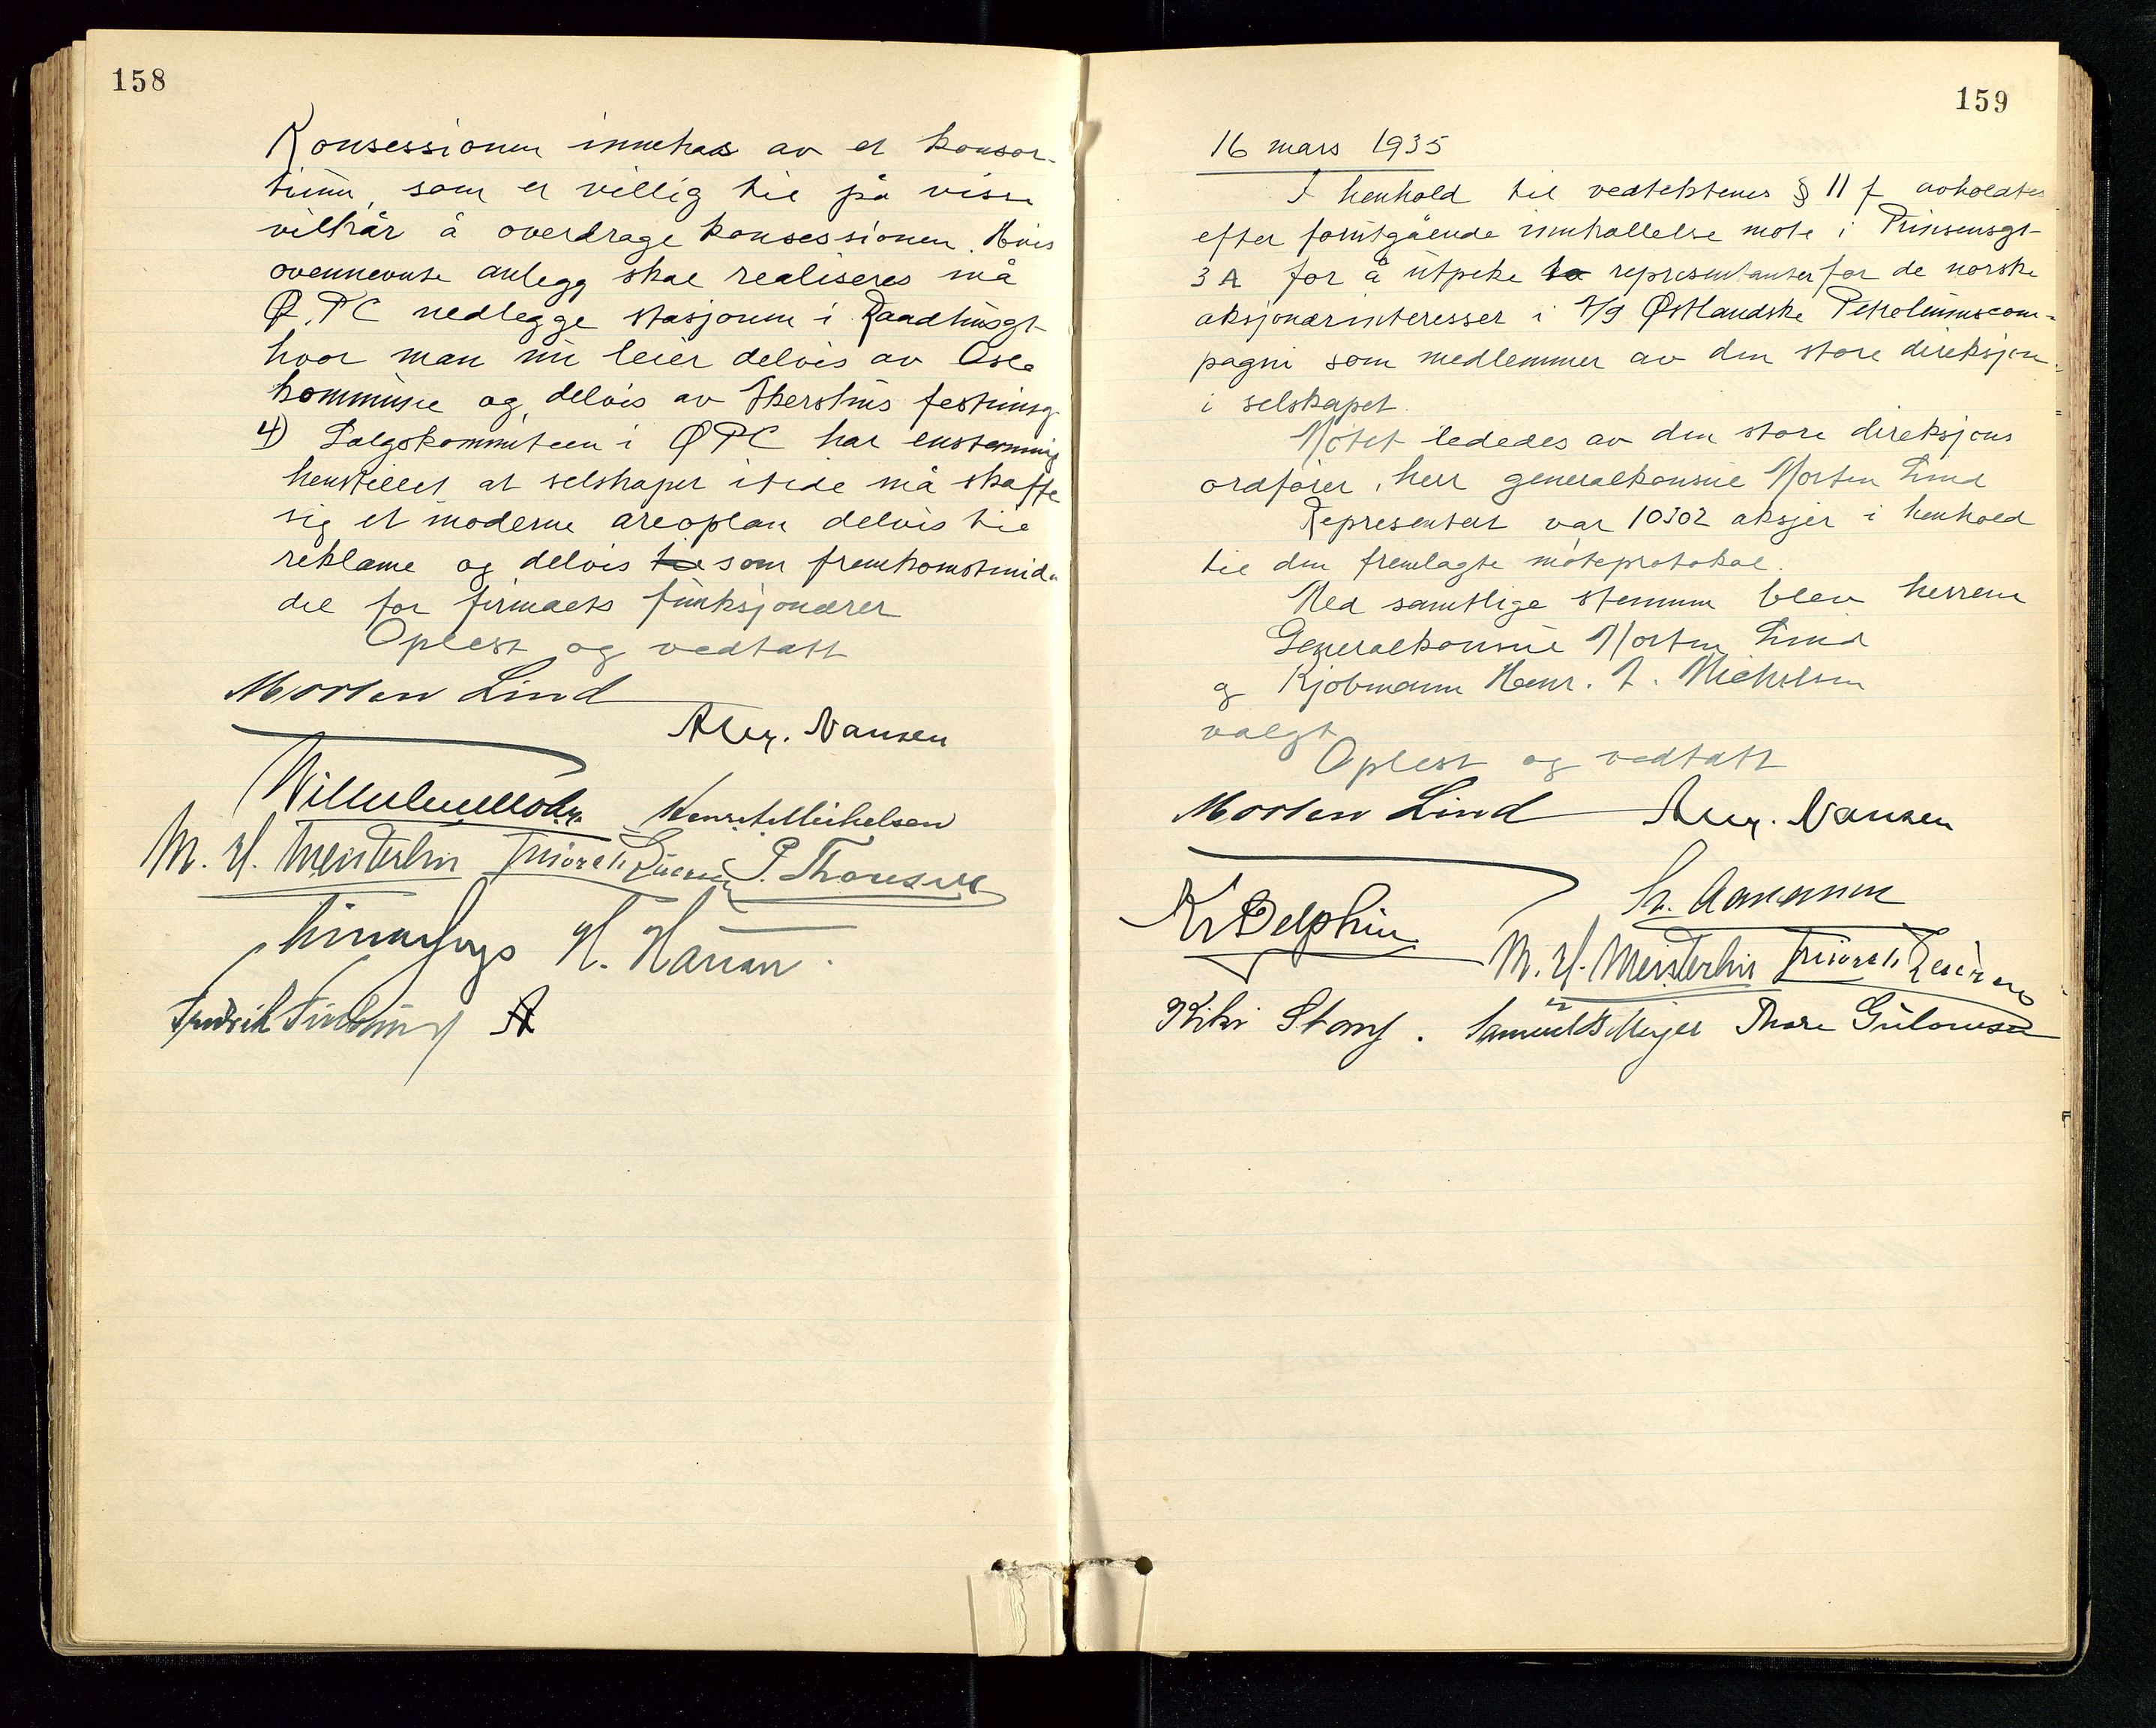 158
Konsessionen innehas av et konsor-
tium, som er villig til på visse
vilkår å overdrage konsessionen. Hvis
ovennevnte anlegg skal realiseres må
Ø.P.C nedlegge stasjonen i Raadhusgt
hvor man nu leier delvis av Oslo
kommune og delvis av Akershus festning
4) Salgskommiteen i ØPC har enstemmig
henstillet at selskapet itide må skaffe
sig et moderne areoplan delvis til
reklame og delvis til som fremkomstmid-
del for firmaets funksjonærer
Oplest og vedtatt
Morten Lind
Alex. Nansen
Wilhelm Mohr. Henr. A. Michelsen
M. H. Meisterlin P. Thoresen
H. Hansen.
Fredrik
159
16 mars 1935
I henhold til vedtektenes § 11 f avholdtes
efter forutgående innkallelse møte i Prinsensgt
3 A for å utpeke to representanter for de norske
aksjonærinteresser i A/S Østlandske Petroleumscom-
pagni som medlemmer av den store direksjon
i selskapet.
Møtet lededes av den store direksjons
ordfører, herr generalkonsul Morten Lind
Representert var 10302 aksjer i henhold
til den fremlagte møteprotokol.
Med samtlige stemmer blev herrene
Generalkonsul Morten Lind
og Kjøbmann Henr. A. Michelsen
valgt
Oplest og vedtatt
Morten Lind Alex. Nansen
Kr Delphin
M. H. Meisterlin
Kiki Stang. Samuel B Meyer Thore Gulowsen